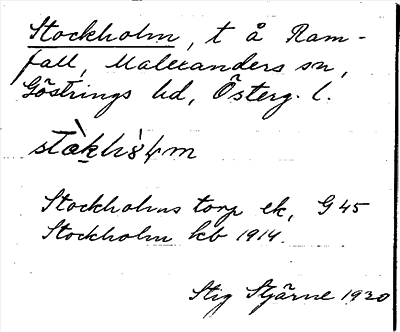 Stockholm, t å Ram-
fall, Malexanders sn,
Göstrings hd, Österg. l.
Stockholms torp ek, G 45
Stockholm kb 1914.
Stig Stjärne 1920